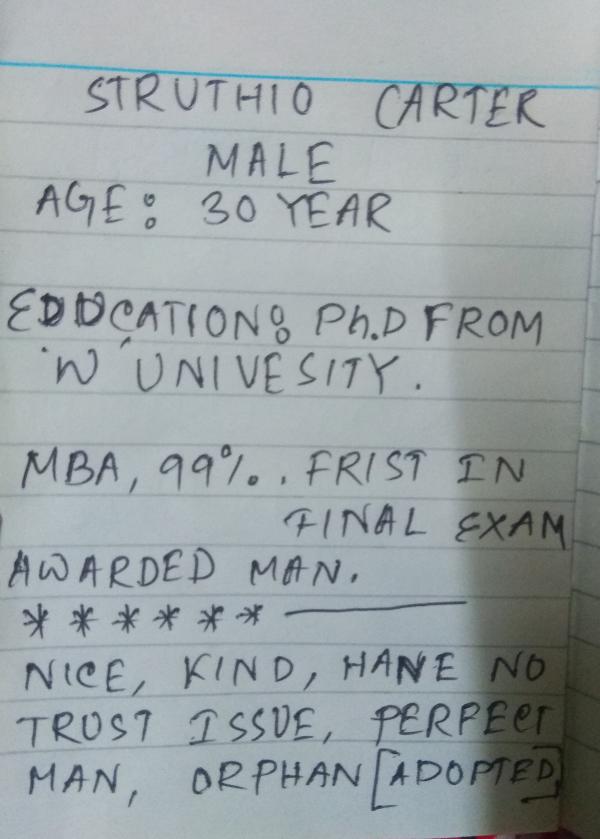 STRUTHIO CARTER
MALE
AGE: 30 YEAR
EDUCATION: Ph.D FROM
'W' UNIVESITY.
MBA, 99%. . FRIST IN
FINAL EXAM
AWARDED MAN.
* * * * * * ―
NICE, KIND, HANE NO
TRUST ISSUE, PERFECT
MAN, ORPHAN [ADOPTED]